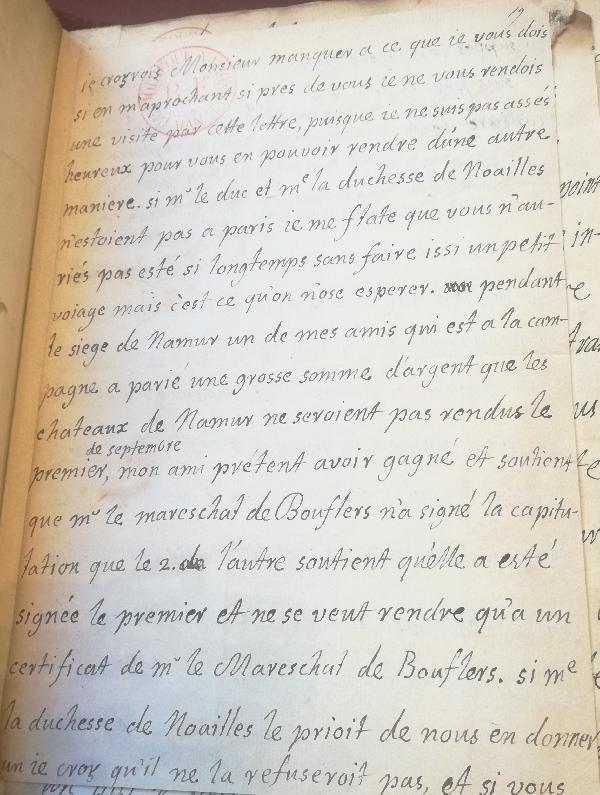 19
ie croyrois Monsieur manquer a ce que ie vous dois
si en m'aprochant si pres de vous ie ne vous rendois
une visite par cette lettre, puisque ie ne suis pas assés
heureux pour vous en pouvoir rendre d'une autre
maniere. si mr le duc et me la duchesse de Noailles
n'estoient pas a paris ie me flate que vous n'au-
riés pas esté si longtemps sans faire issi un petit
voiage mais c'est ce qu'on n'ose esperer. pendant
le siege de Namur un de mes amis qui est a la cam-
pagne a parié une grosse somme d'argent que les
chateaux de Namur ne seroient pas rendus le
de septembre
premier, mon ami prétent avoir gagné et soutient
que mr le mareschal de Bouflers n'a signé la capitu-
lation que le 2. l'autre soutient qu'elle a esté
signée le premier et ne se veut rendre qu'a un
certificat de mr le Mareschal de Bouflers. si me
la duchesse de Noailles le prioit de nous en donner
un ie croy qu'il ne la refuseroit pas, et si vous